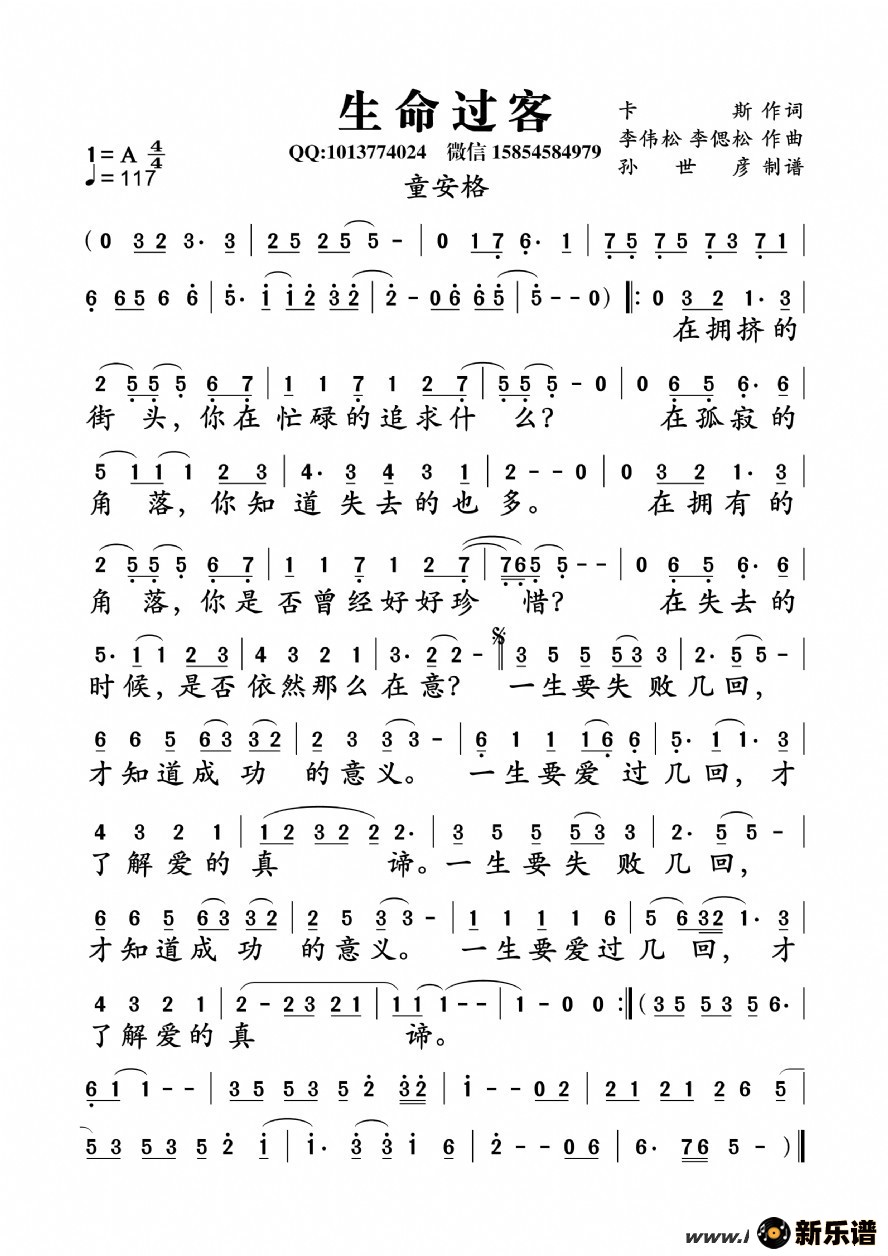 生命过客
卡 斯 作词
李伟松 李偲松 作曲
孙 世 彦 制谱
1=A 4/4
♩=117
QQ:1013774024 微信 15854584979
童安格
(0 32 3· 3 | 25 25 5 5 - | 0 17 6· 1 | 75 75 73 71 |
6 65 6 6 | 5· 1 12 32 | 2 - 06 65 | 5 - - 0) ‖: 0 32 1· 3
在拥挤的
2 55 5 67 | 1 1 7 1 27 | 55 5 - 0 | 0 65 6· 6
街 头，你在忙碌的追求什 么？ 在孤寂的
5 11 1 23 | 4· 3 4 3 1 | 2 - - 0 | 0 32 1· 3
角 落，你知道失去的也多。 在拥有的
2 55 5 67 | 1 1 7 1 27 | 765 5 - - | 0 65 6· 6
角落，你是否曾经好好珍 惜？ 在失去的
5· 1 1 23 | 4 3 2 1 | 3· 2 2 - 𝄋‖ 3 5 5 53 3 | 2· 5 5 - |
时候，是否依然那么在意？ 一生要失败几回，
6 6 5 63 32 | 2 3 3 3 - | 6 1 1 16 6 | 5· 1 1· 3
才知道成 功 的意义。 一生要爱过几回，才
4 3 2 1 | 12 32 2 2· | 3 5 5 53 3 | 2· 5 5 -
了解爱的真 谛。一生要失败几回，
6 6 5 63 32 | 2 5 3 3 - | 1 1 1 1 6 | 5 632 1· 3
才知道成 功 的意义。 一生要爱过几回，才
4 3 2 1 | 2 - 23 21 | 11 1 - - | 1 - 0 0 :‖ (35 535 6·
了解爱的真 谛。
61 1 - - | 35 535 2 32 | 1 - - 02 | 21 21 26 5
53 535 2 1 | 1· 3 3 1 6 | 2 - - 06 | 6· 76 5 -)‖
www.
新乐谱